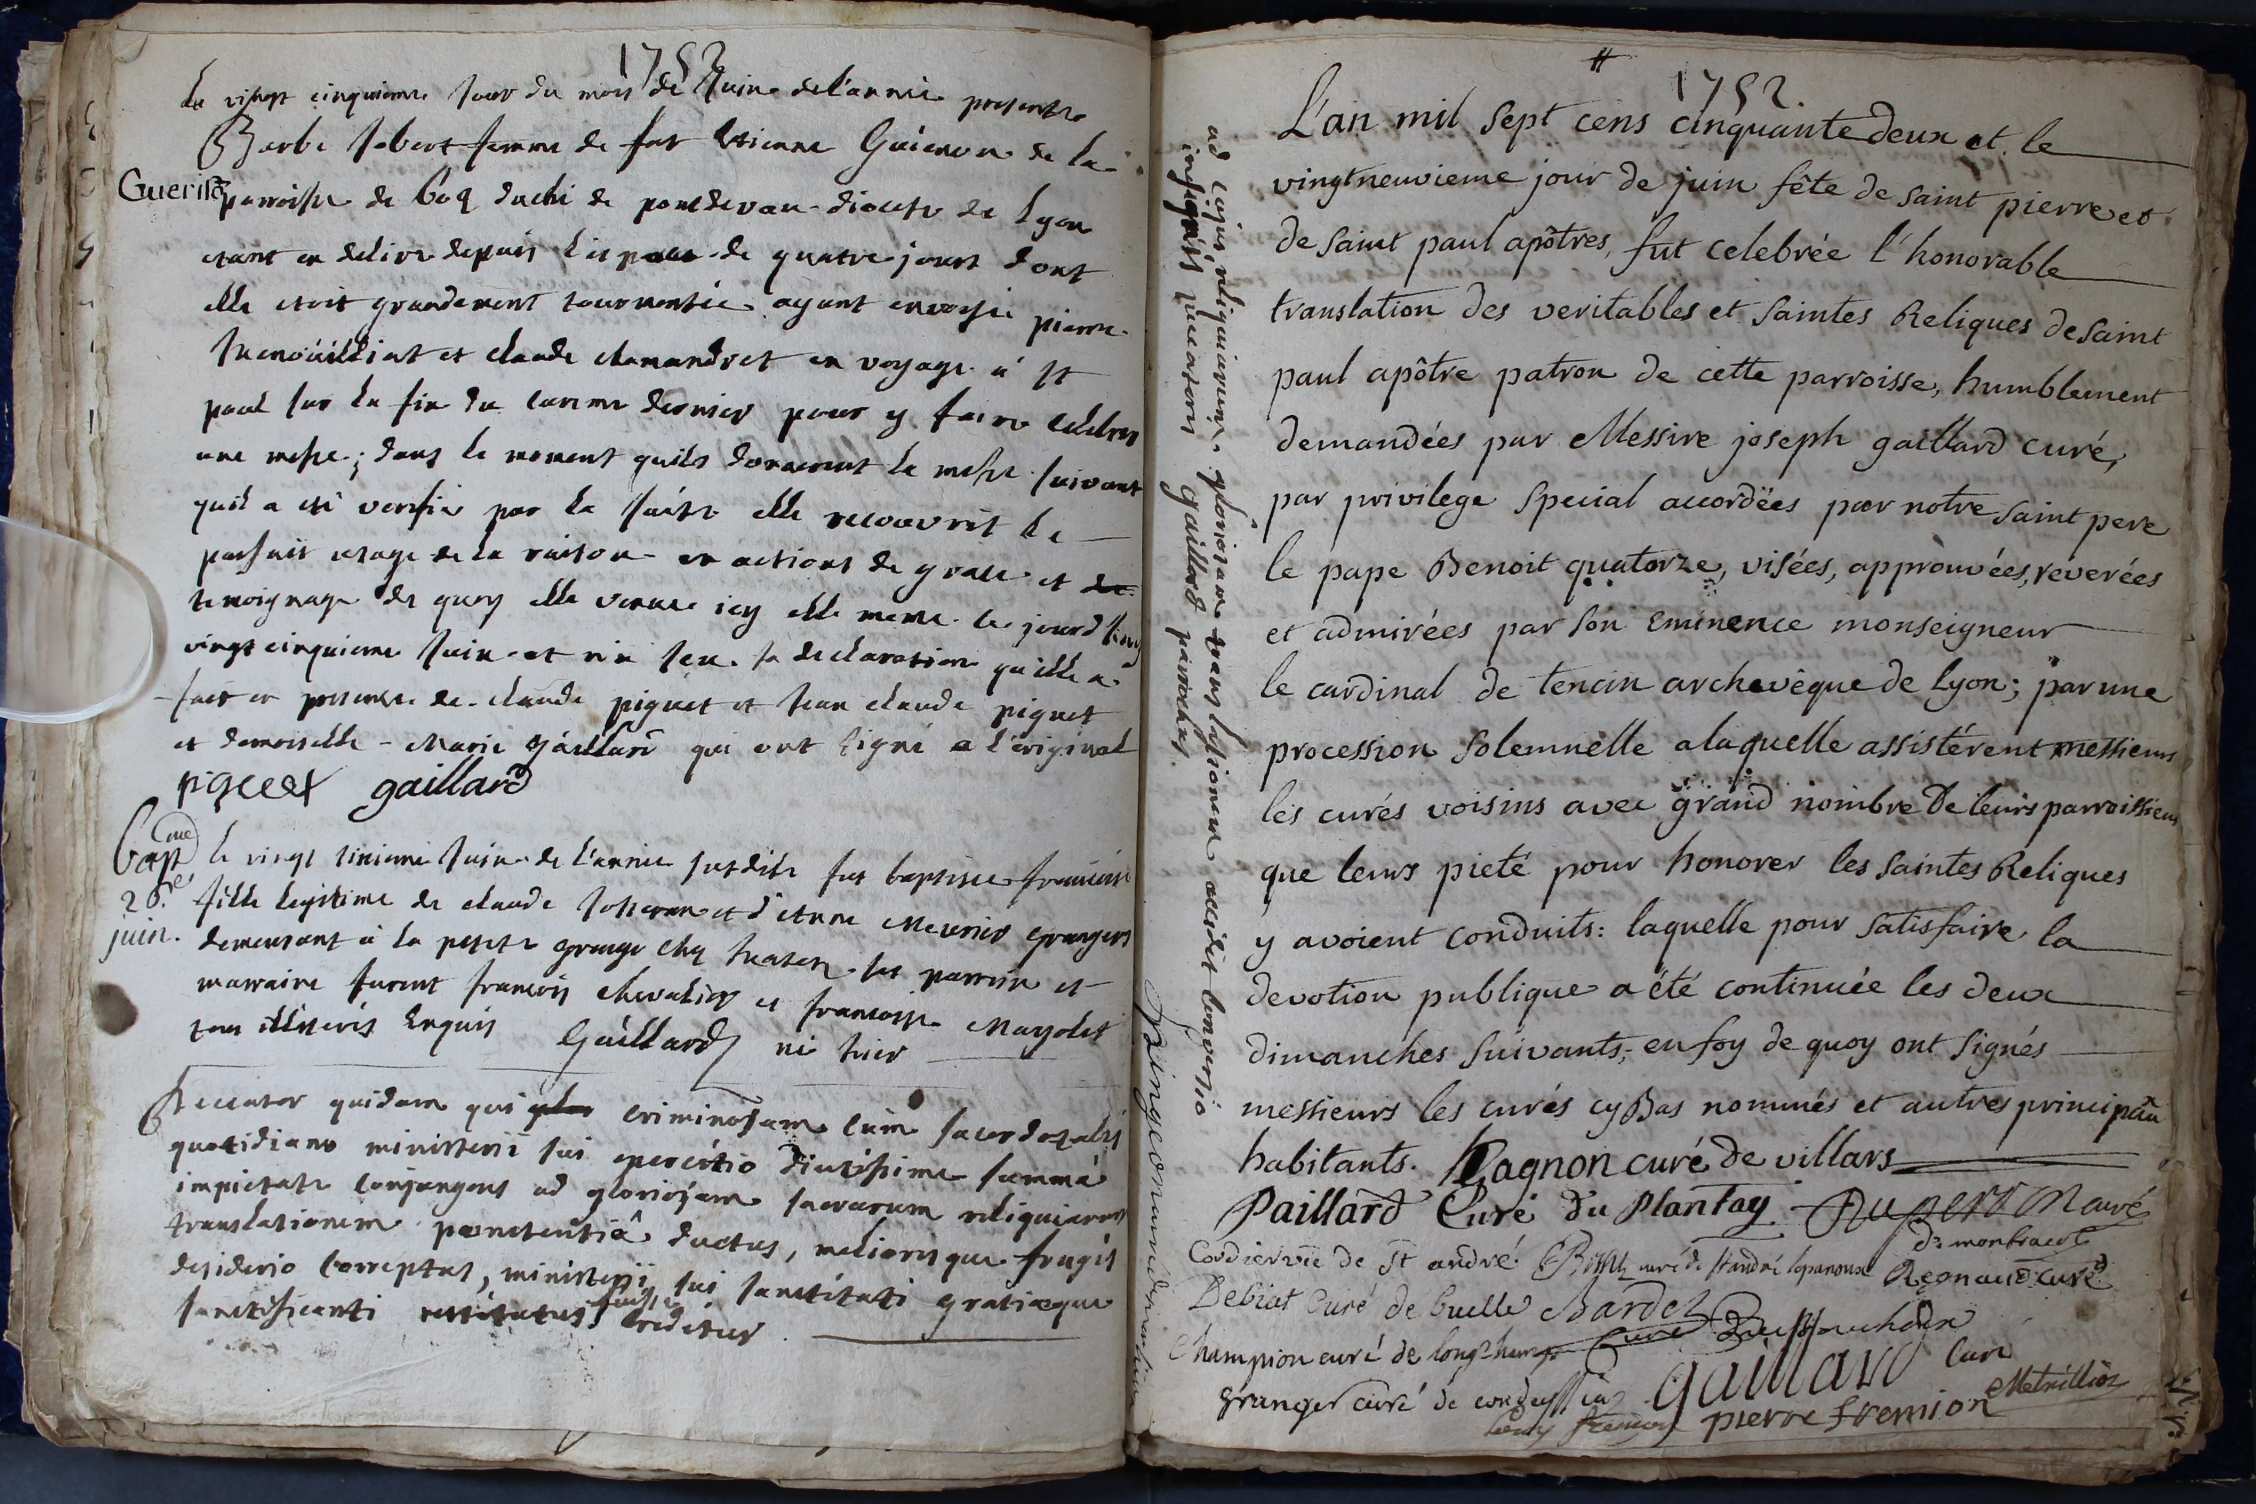 1752
Le vingt cinquieme jour du mois de Juin de l'année presente
Barbe Jobert femme de fut Etienne Guienon de la
Guerison
parroisse de duché de pondevau diocese de Lyon
etant en delire depuis l'espace de quatre jours dont
elle etoit grandement tourmentée ayant envoyé pierre
et claude en voyage à St
paul sur la fin du careme dernier pour y faire celebrer
une messe; dans le moment quils donnerent la messe suivant
quil a eté verifié par la suite elle recouvrit le
parfait usage de la raison en actions de grace et de
temoignage de quoy elle venue icy elle meme le jourd'huy
vingt cinquieme Juin et sa declaration quelle a
fait en presence de claude piquet et Jean claude piquet
et demoiselle Marie gaillard qui ont signé a l'original
piqeet gaillard
Baptme
26e
juin.
le vingt sixieme Juin de l'année susdite fut baptisee francoise
fille legitime de claude et d'Anne Meunier grangers
demeurant à la petite grange parrein et
marraine furent francois chevalier et francoise Mayolet
tous illiterés Enquis Gaillard né hier
Peccator quidam qui criminosam cum sacerdotalis
quotidiano ministerii sui exercitio diutissime summâ
impietate conjungens ad gloriosam sacrarum reliquiarum
translationem poenitentiâ ductus, meliorisque frugis
desiderio correptus, ministerii sui sanctitati gratiaeque
sanctificanti restitutus fuisse creditur.
ad cujus reliquiarum gloriosam translationem accidit conversio
insignis peccatoris gaillard parochus.
1752.
L'an mil sept cens cinquante deux et le
vingtneuvieme jour de juin fête de saint pierre et
de saint paul apôtres, fut celebrée l'honorable
translation des veritables et saintes Reliques de saint
paul apôtre patron de cette parroisse, humblement
demandées par Messire joseph gaillard curé,
par privilege special accordëes par notre saint pere
le pape Benoit quatorze, visées, approuvées, reverées
et admirées par son eminence monseigneur
le cardinal de tencin archevêque de Lyon; par une
procession solemnelle a laquelle assistérent messieurs
les curés voisins avec grand nombre de leurs parroissiens
que leurs pieté pour honorer les saintes Reliques
y avoient conduits: laquelle pour satisfaire la
devotion publique a été continuée les deux
dimanches suivants; en foy de quoy ont signés
messieurs les curés cy Bas nommés et autres principau
habitants. Gagnon curé de villars
Paillard Curé du Plantay
Cordier vic de st andré curé de St andré lepanoux Regnaud curé
Debiat Curé de buelle Bardet
Champion curé de curé
granger curé de gaillard curé
pierre fremion